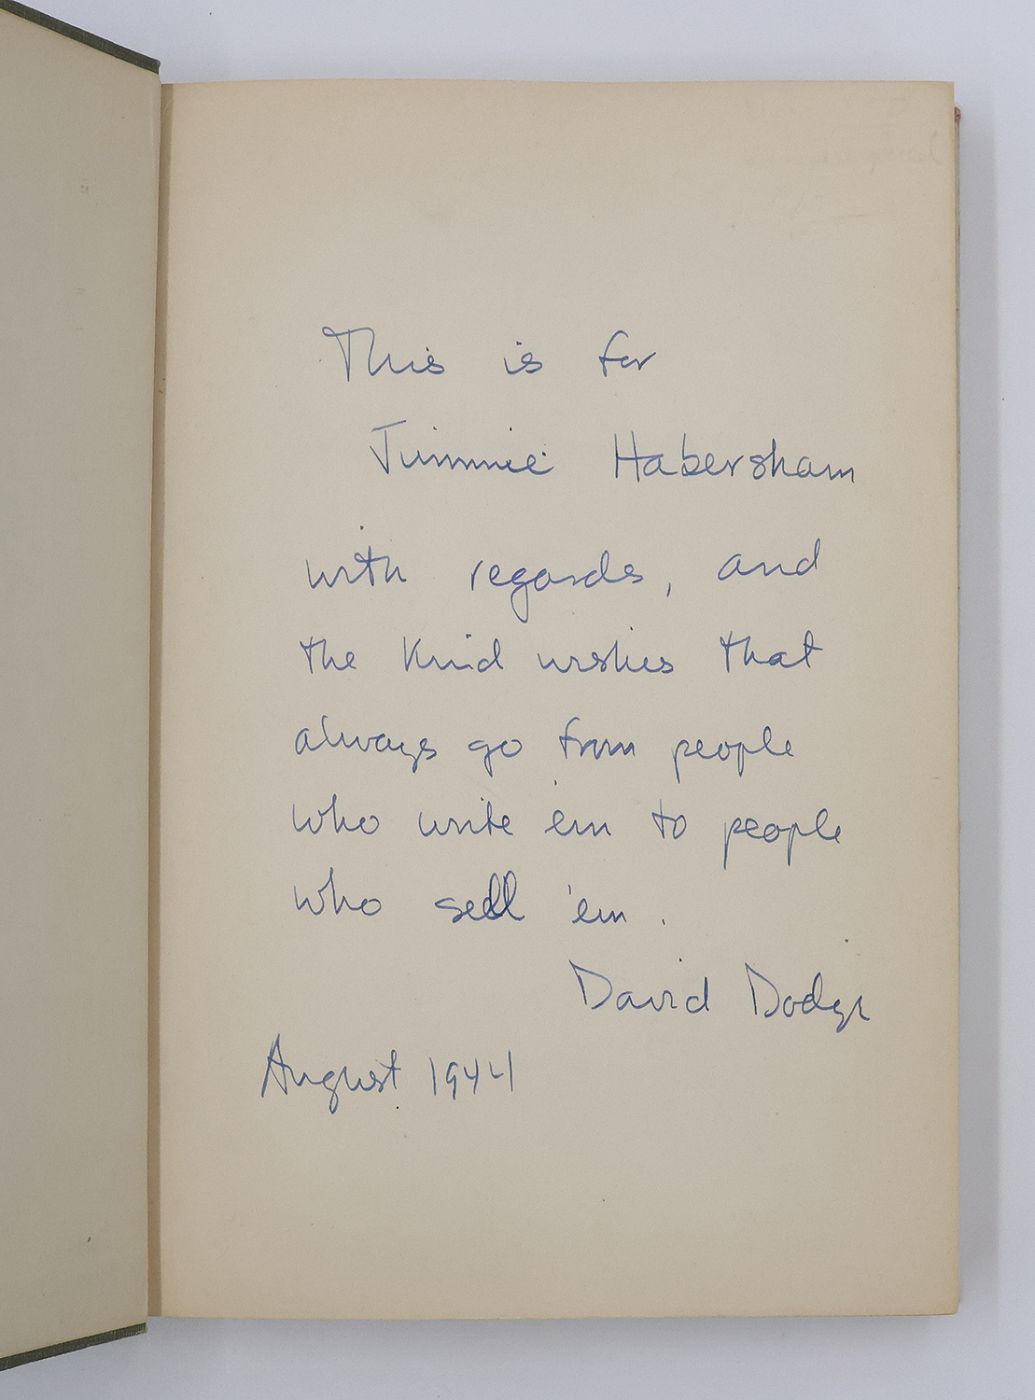 This is for
Jimmie Habersham
with regards, and
the kind wishes that
always go from people
who write 'em to people
who sell 'em.
David Dodge
August 1944